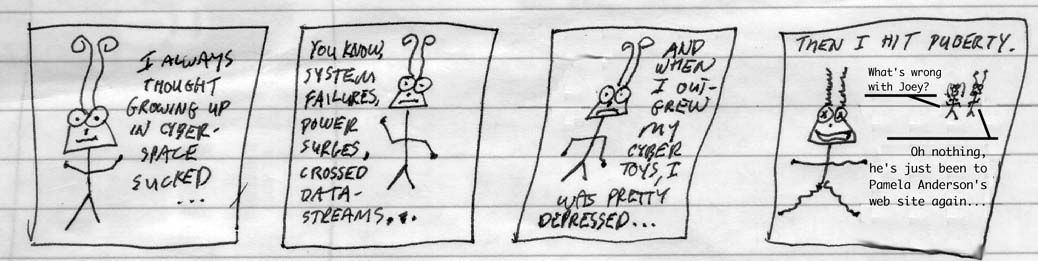 I ALWAYS
THOUGHT
GROWING UP
IN CYBER-
SPACE
SUCKED
...
YOU KNOW,
SYSTEM
FAILURES,
POWER
SURGES,
CROSSED
DATA-
STREAMS,...
AND
WHEN
I OUT-
GREW
MY
CYBER
TOYS, I
WAS PRETTY
DEPRESSED...
THEN I HIT PUBERTY.
What's wrong
with Joey?
Oh nothing,
he's just been to
Pamela Anderson's
web site again...